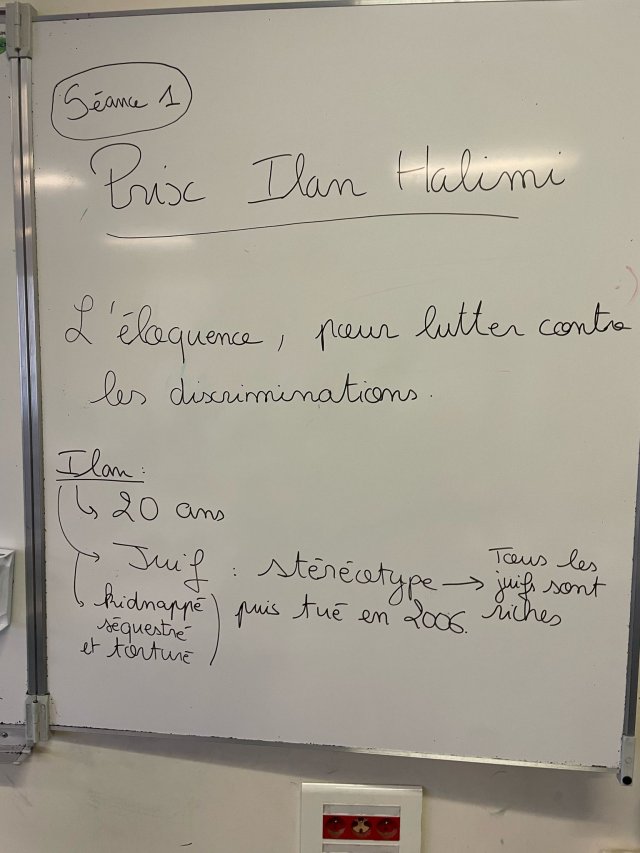 Séance 1
Prix Ilan Halimi
L'éloquence, pour lutter contre
les discriminations.
Ilan :
↳ 20 ans
→ Juif : stéréotype → Tous les
juifs sont
riches
↳ kidnappé
séquestré
et torturé ) puis tué en 2006.